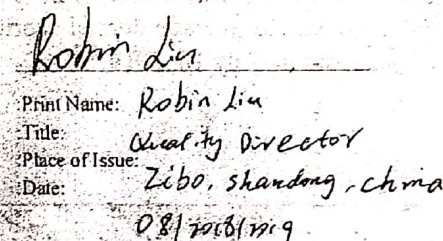 Robin Liu
Print Name: Robin Liu
Title: Quality Director
Place of Issue: Zibo, shandong, china
Date: